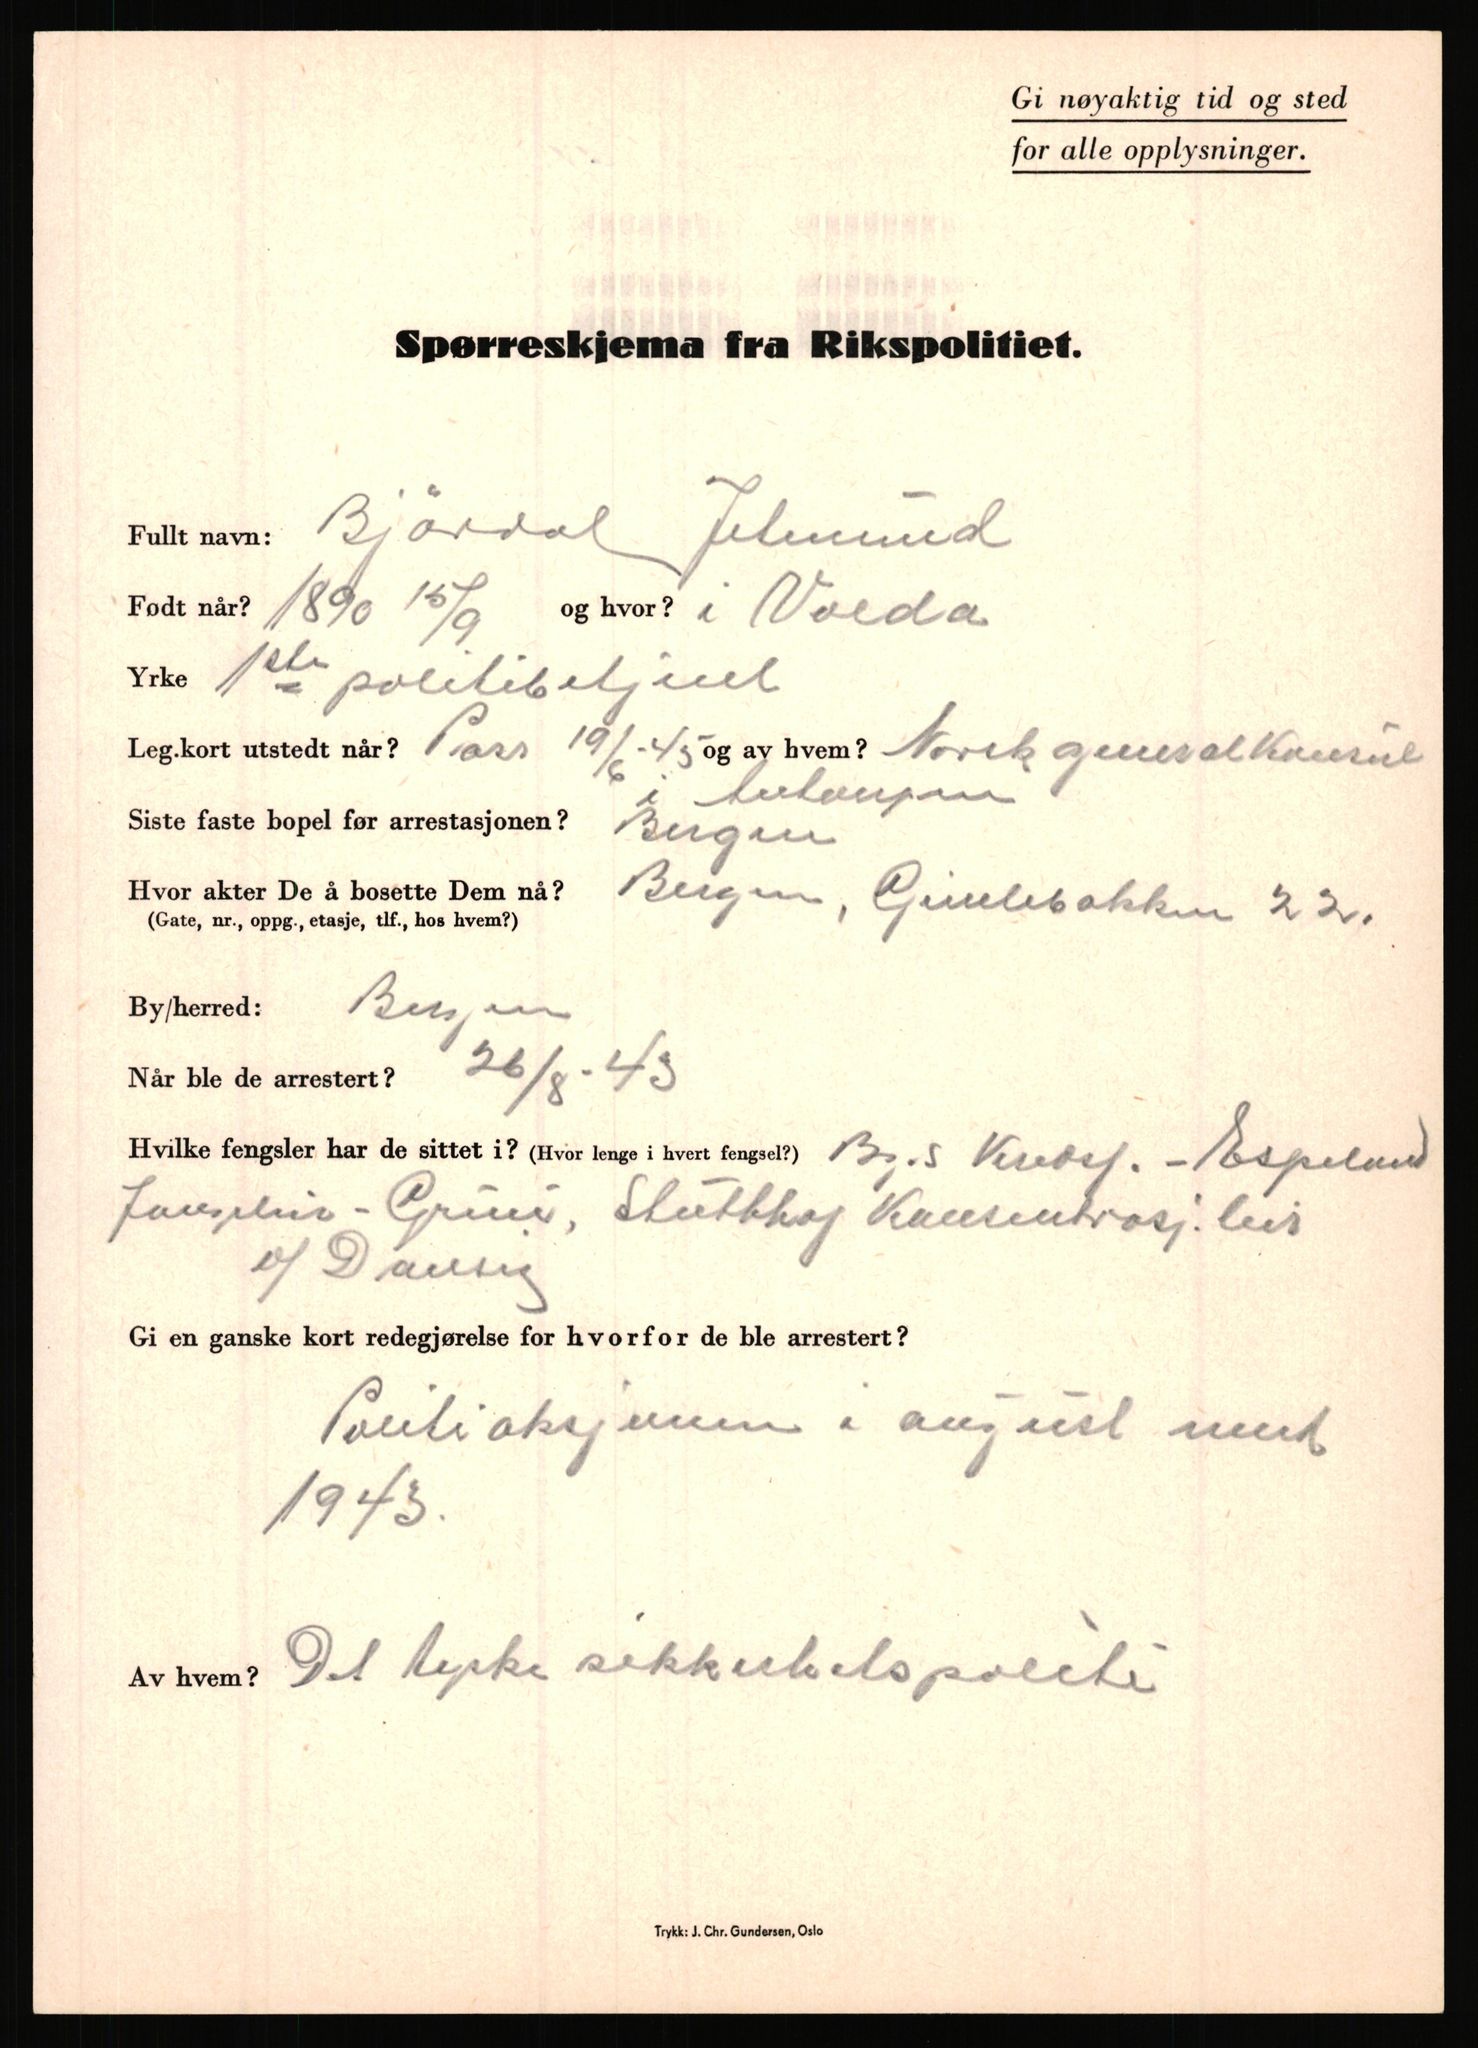 Gi nøyaktig tid og sted
for alle opplysninger.
Spørreskjema fra Rikspolitiet.
Fullt navn: Bjørdal Jetmund
Født når? 1890 15/9 og hvor? i Volda
Yrke 1ste politibetjent
Leg.kort utstedt når? Pass 19/6-45 og av hvem? Norsk generalkonsul
i Antwerpen
Siste faste bopel før arrestasjonen? Bergen
Hvor akter De å bosette Dem nå? Bergen, Gimlebakken 22.
(Gate, nr., oppg., etasje, tlf., hos hvem?)
By/herred: Bergen
Når ble de arrestert? 26/8-43
Hvilke fengsler har de sittet i? (Hvor lenge i hvert fengsel?) Bg.s Kretsf. - Espeland
fangeleir - Grini, Stutthof Konsentrasj.leir
v/ Danzig
Gi en ganske kort redegjørelse for hvorfor de ble arrestert?
Politiaksjonen i august mnd
1943.
Av hvem? Det tyske sikkerhetspoliti
Trykk: J. Chr. Gundersen, Oslo